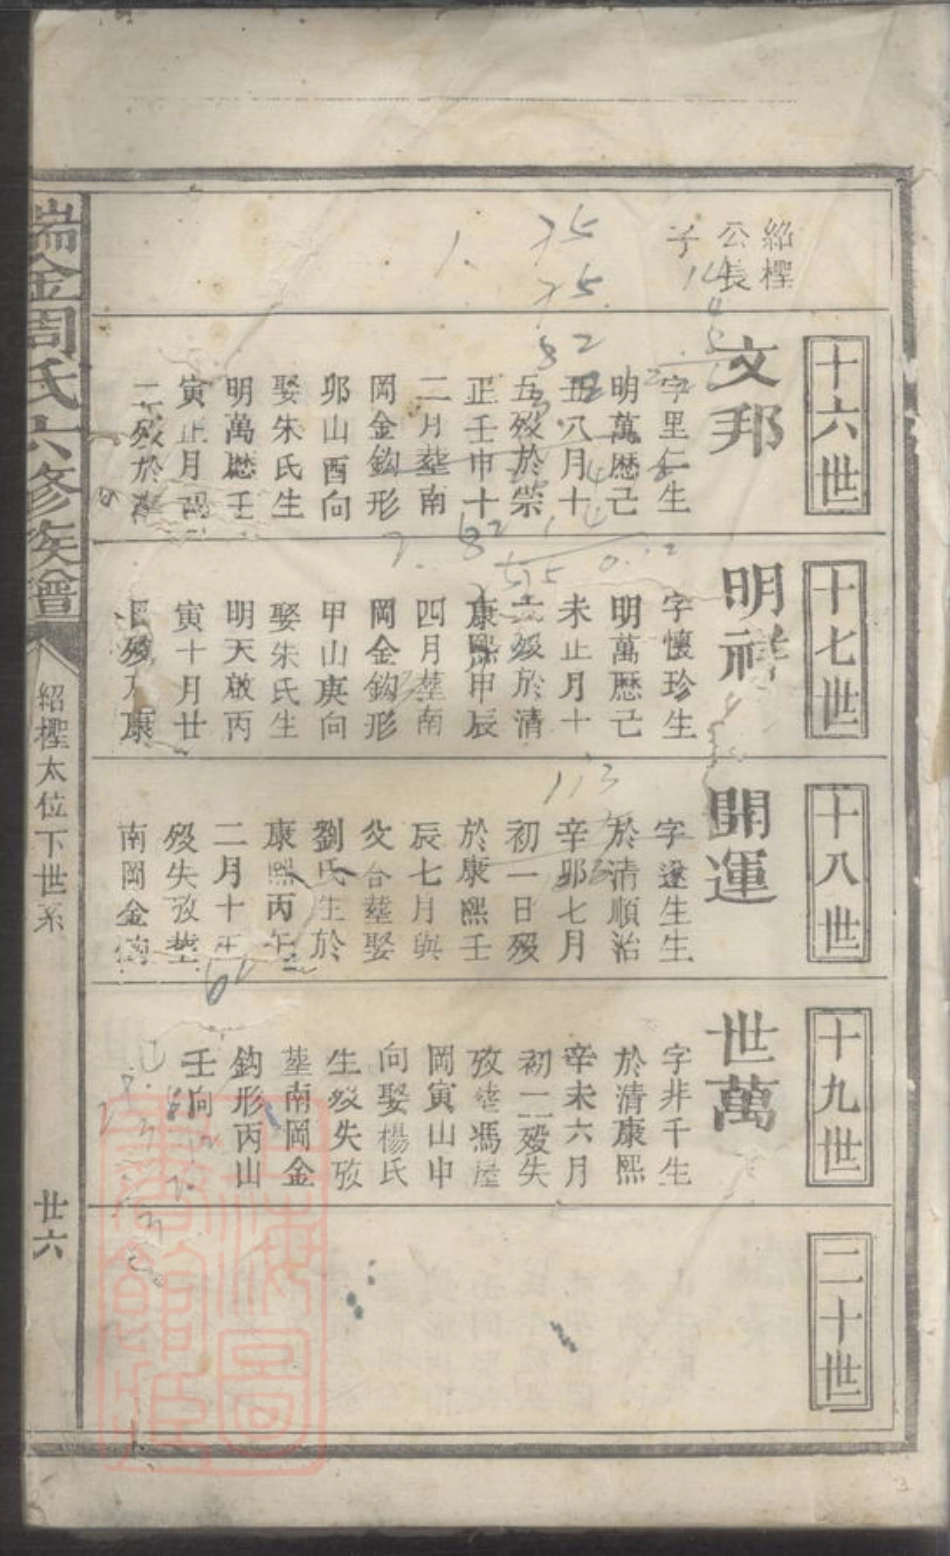 紹檉
公長
子
十六世
文邦
字里仁生
明萬歴己
五八月十
五歿於崇
正壬申十
二月塟南
岡金鈎形
卯山酉向
娶朱氏生
明萬歴壬
寅正月
二歿於
十七世
明祥
字懷珍生
明萬歴己
未正月十
六歿於清
康熙甲辰
四月塟南
岡金鈎形
甲山庚向
娶朱氏生
明天啟丙
寅十月廿
日歿于康
十八世
開運
字遂生生
於清順治
辛卯七月
初一日歿
於康熙壬
辰七月與
父合塟娶
劉氏生於
康熙丙午
二月十五
歿失攷塟
南岡金鈎
十九世
世萬
字非千生
於清康熙
辛未六月
初二歿失
攷塟馮屋
岡寅山申
向娶楊氏
生歿失攷
塟南岡金
鈎形丙山
壬向
二十世
瑞金周氏六修族譜
紹檉太位下世系
廿六
上海圖
書館藏